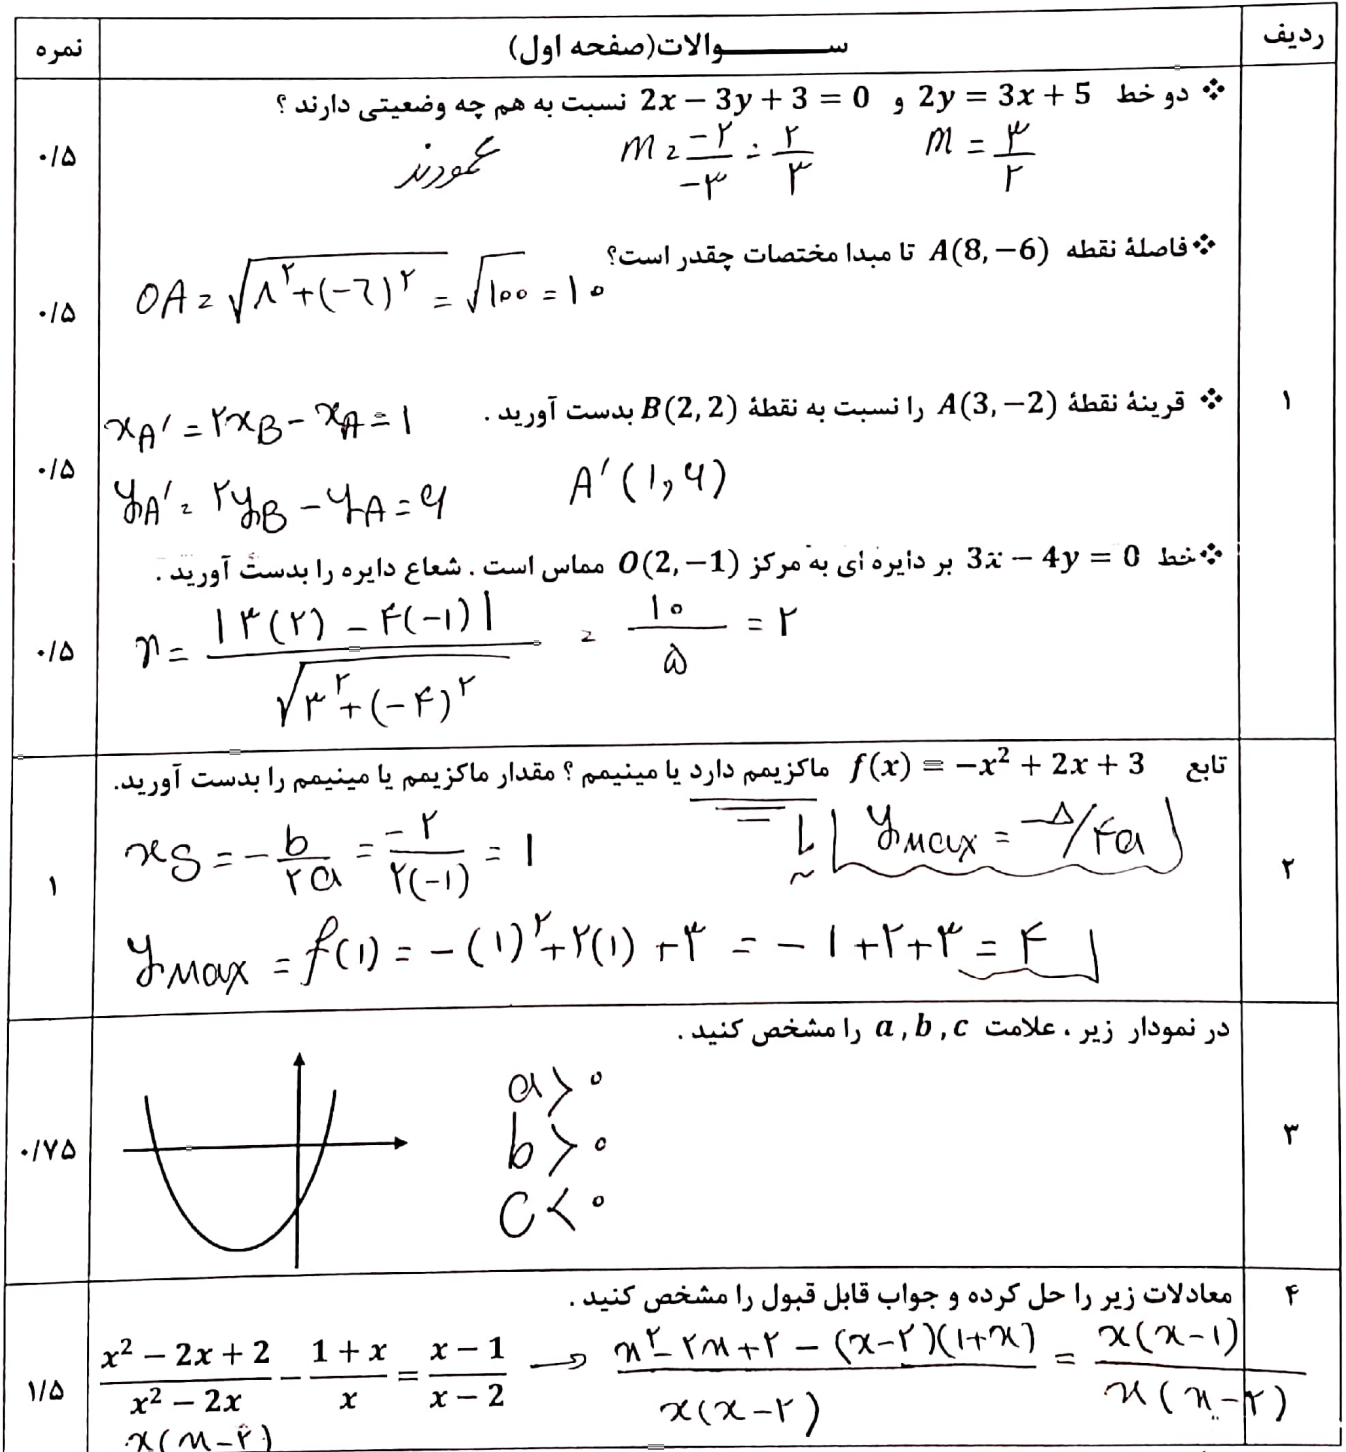 ردیف سـوالات(صفحه اول) نمره
❖ دو خط 2y = 3x + 5 و 2x − 3y + 3 = 0 نسبت به هم چه وضعیتی دارند ؟
۰/۵
m = ۳/۲ m = −۲/−۳ = ۲/۳ عمودند
❖ فاصلهٔ نقطه A(8, −6) تا مبدا مختصات چقدر است؟
OA = √۸^۲+(−۶)^۲ = √۱۰۰ = ۱۰
۰/۵
۱
❖ قرینهٔ نقطهٔ A(3, −2) را نسبت به نقطهٔ B(2, 2) بدست آورید .
xA′ = ۲xB − xA = ۱
۰/۵
yA′ = ۲yB − yA = ۶ A′(۱,۶)
❖ خط 3x − 4y = 0 بر دایره ای به مرکز O(2, −1) مماس است . شعاع دایره را بدست آورید .
r = |۳(۲) − ۴(−۱)| / √۳^۲+(−۴)^۲ = ۱۰/۵ = ۲
۰/۵
۲
تابع f(x) = −x² + 2x + 3 ماکزیمم دارد یا مینیمم ؟ مقدار ماکزیمم یا مینیمم را بدست آورید.
xS = −b/۲a = −۲/۲(−۱) = ۱ یا yMax = −Δ/۴a
۱
yMax = f(۱) = −(۱)^۲+۲(۱)+۳ = −۱+۲+۳ = ۴
در نمودار زیر ، علامت a , b , c را مشخص کنید .
a > ۰
b > ۰
c < ۰
۳
۰/۷۵
۴
معادلات زیر را حل کرده و جواب قابل قبول را مشخص کنید .
(x² − 2x + 2)/(x² − 2x) − (1 + x)/x = (x − 1)/(x − 2) → (x^۲ − ۲x + ۲ − (x−۲)(۱+x))/(x(x−۲)) = (x(x−۱))/(x(x−۲))
۱/۵
x(x−۲)